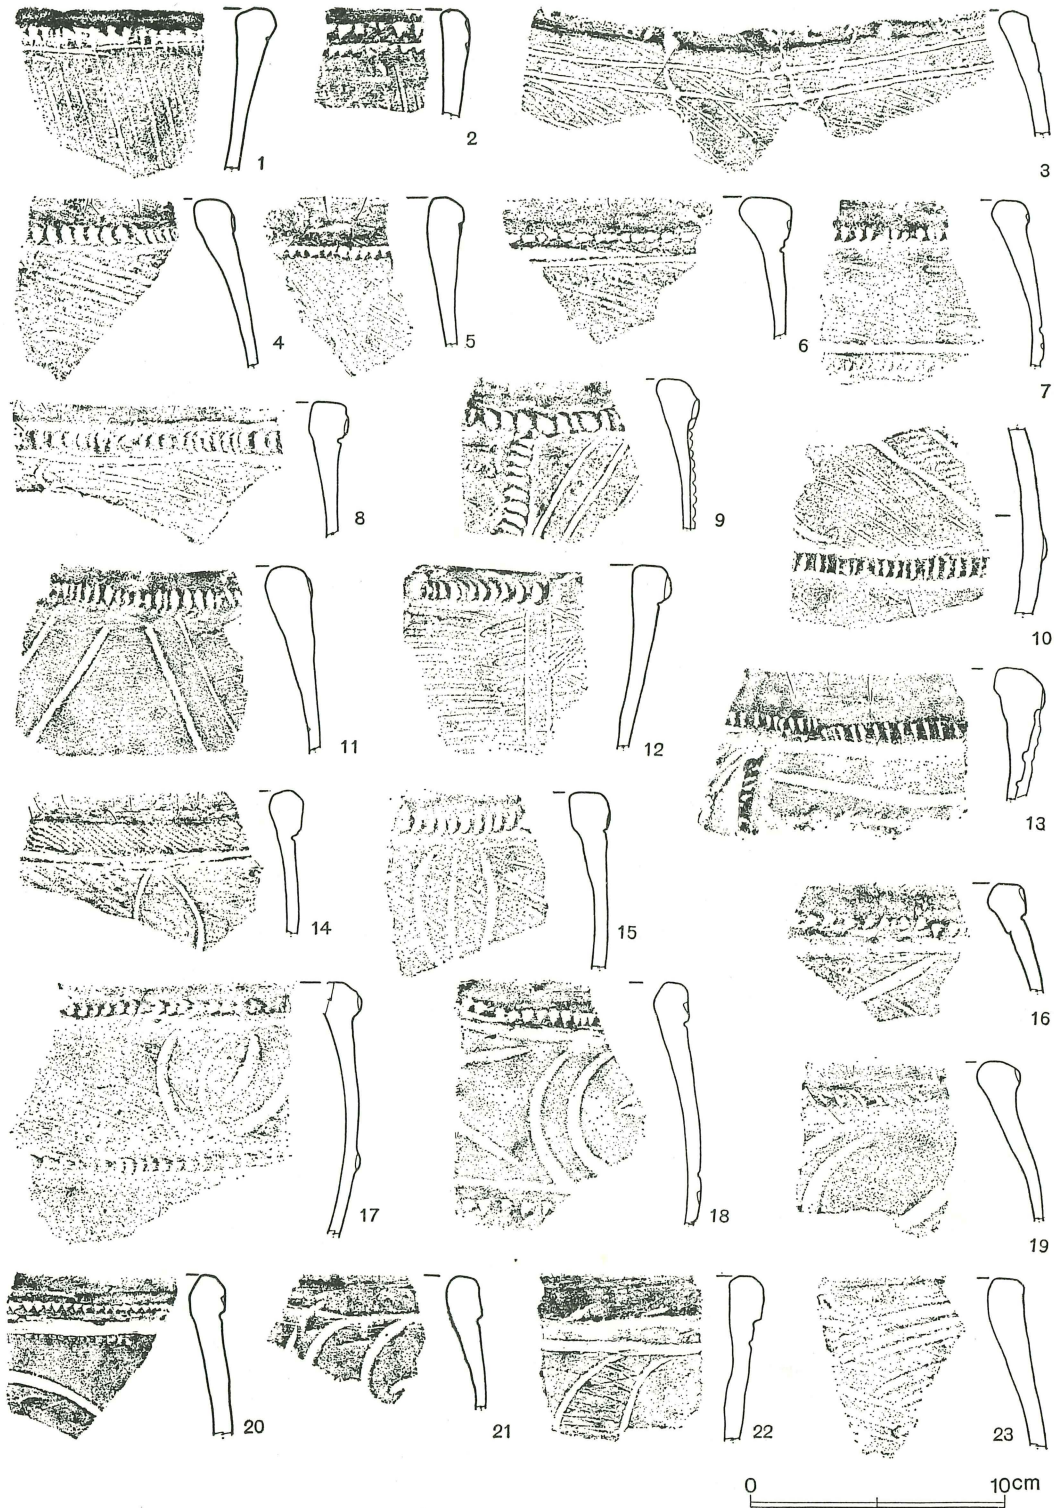 1
2
3
4
5
6
7
8
9
10
11
12
13
14
15
16
17
18
19
20
21
22
23
0 10cm